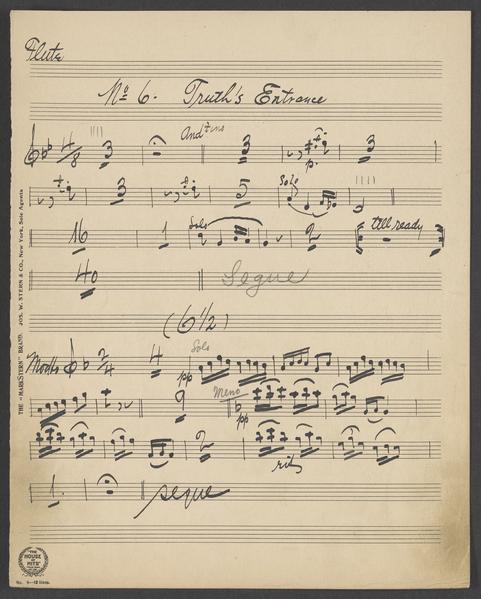 Flute
No 6. Truth's Entrance
4/8 3 Andtino 3 p. 3
3 5 Solo
16 1 Solo 2 till ready
40 Segue
(6 1/2)
2/4 4 pp Solo
9 Meno pp
2 rit
1. segue
THE "MARKSTERN" BRAND. JOS. W. STERN & CO., New York, Sole Agents
"THE HOUSE OF HITS"
No. 6—12 lines.